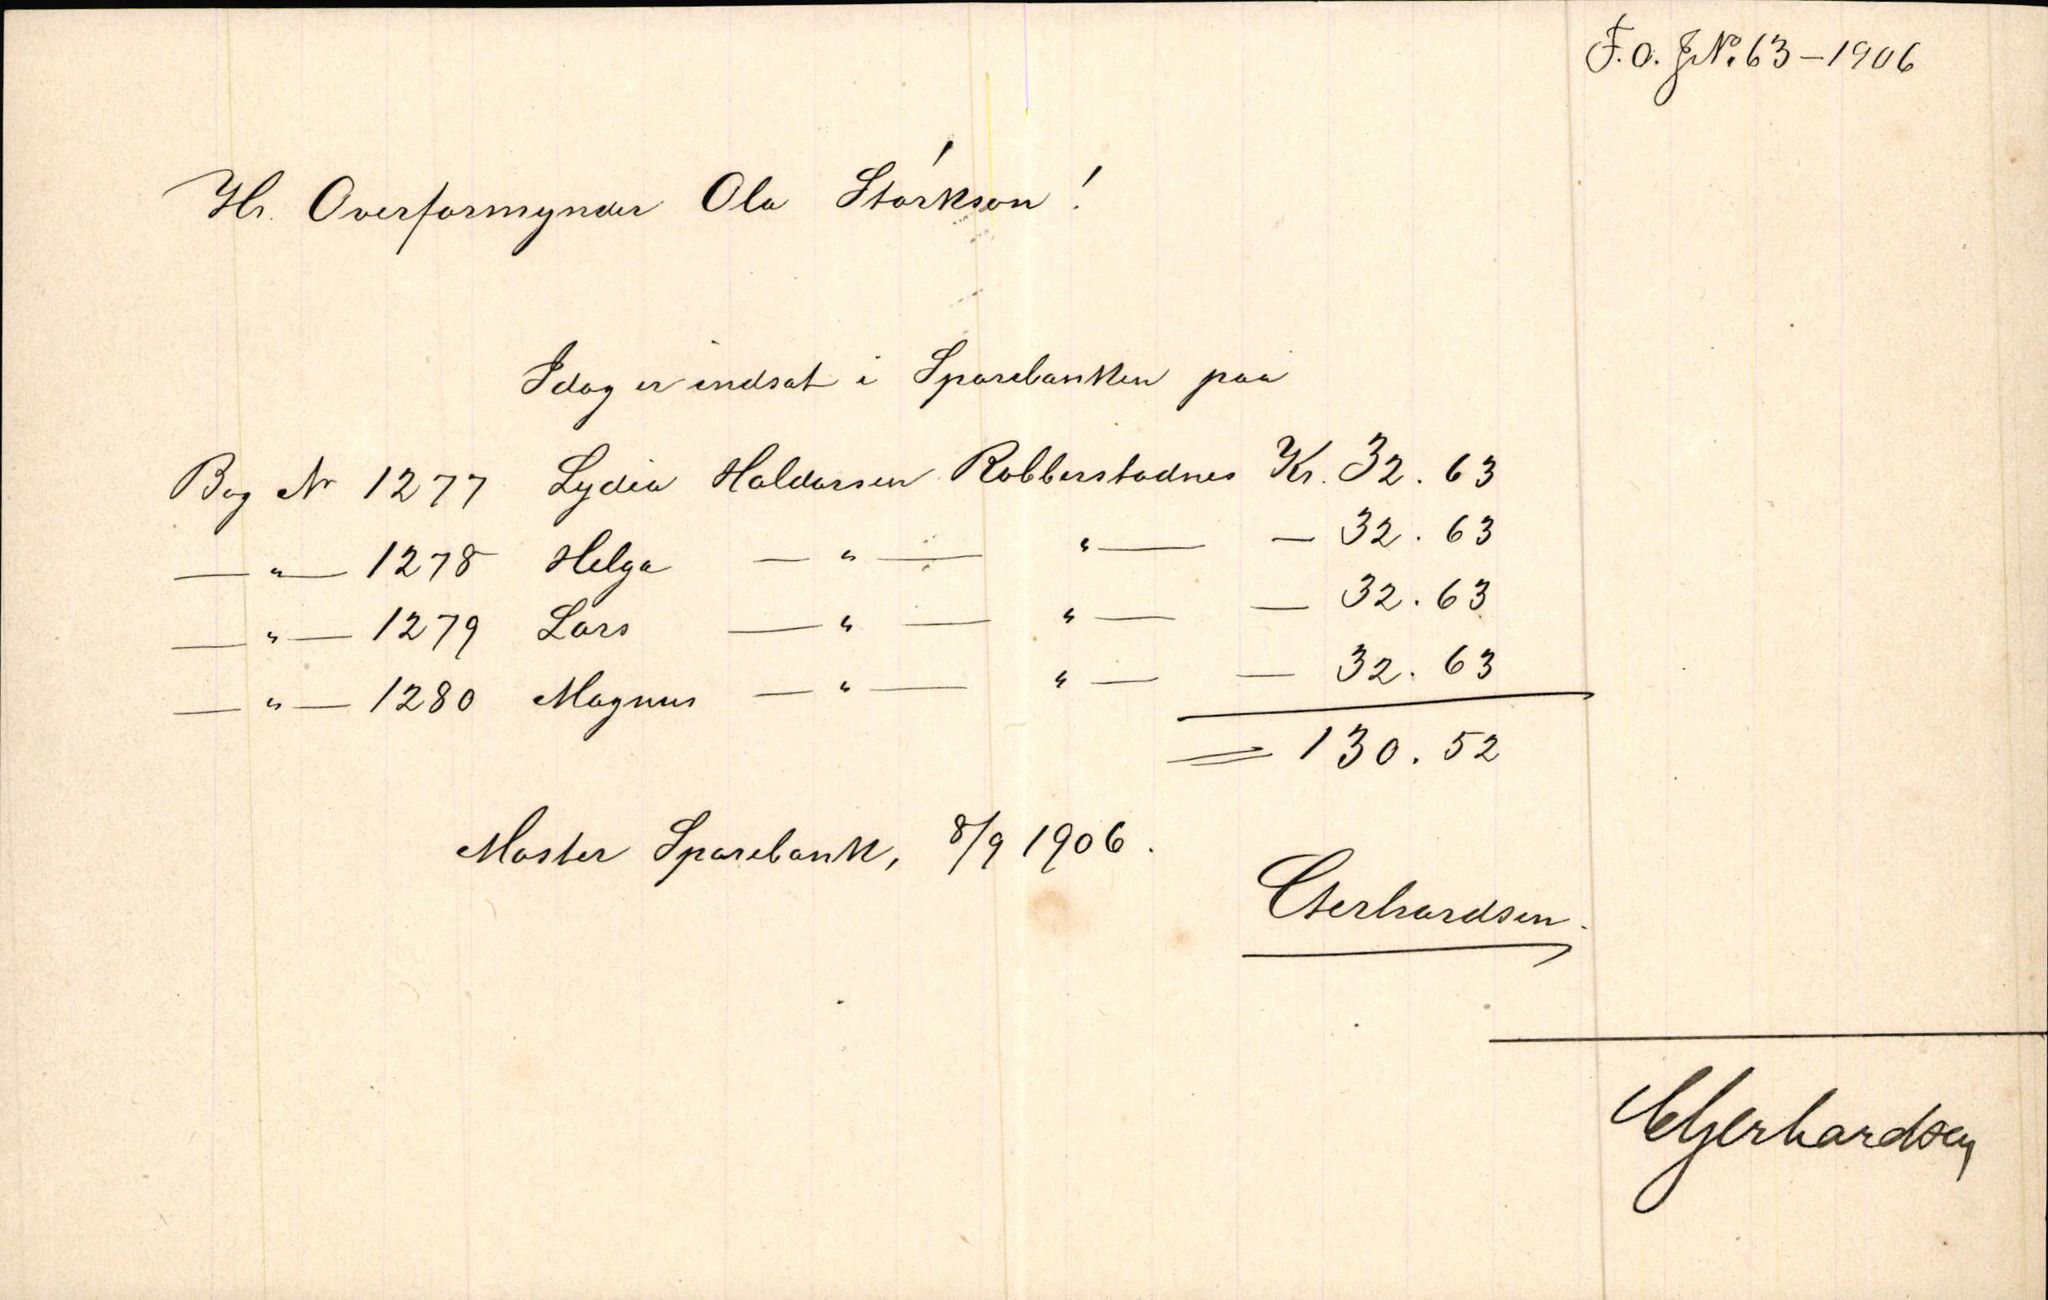 F. O. J. No. 63 – 1906
Hr. Overformynder Ola Storkson!
Idag er indsat i Sparebanken paa
Bog Nr 1277 Lydia Haldorsen Robberstadnes Kr. 32.63
— " — 1278 Helga — " — " — — 32.63
— " — 1279 Lars — " — " — — 32.63
— " — 1280 Magnus — " — " — — 32.63
= 130.52
Moster Sparebank, 8/9 1906.
Gerhardsen.
Gerhardsen